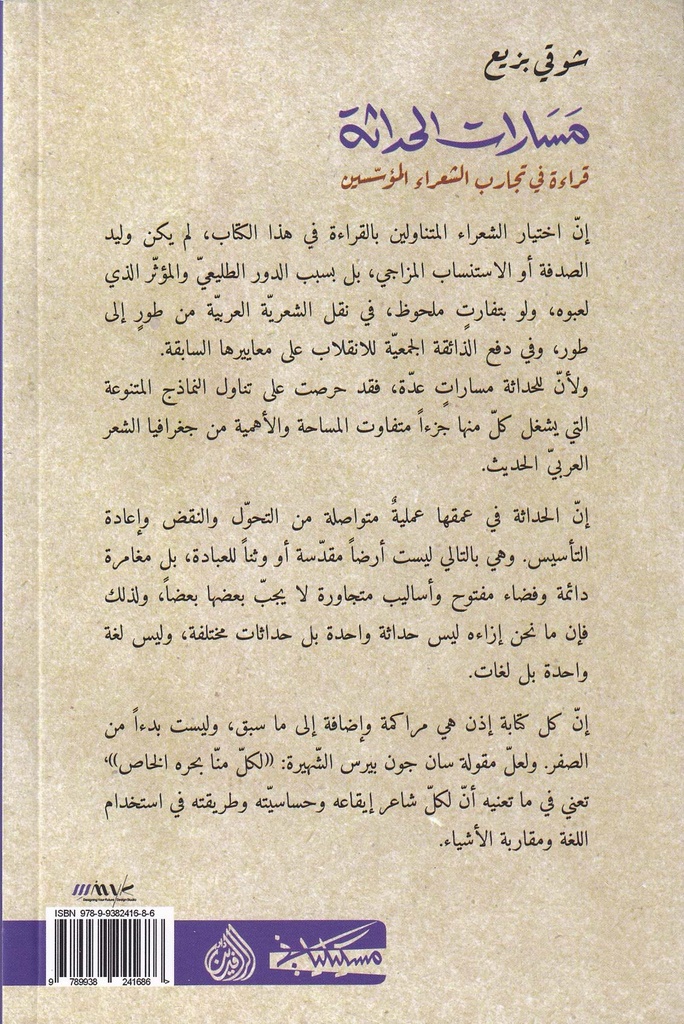 شوقي بزيع
مَسَارات الحداثة
قراءة في تجارب الشعراء المؤسّسين
إنّ اختيار الشعراء المتناولين بالقراءة في هذا الكتاب، لم يكن وليد
الصدفة أو الاستنساب المزاجي، بل بسبب الدور الطليعيّ والمؤثّر الذي
لعبوه، ولو بتفارتٍ ملحوظ، في نقل الشعريّة العربيّة من طورٍ إلى
طور، وفي دفع الذائقة الجمعيّة للانقلاب على معاييرها السابقة.
ولأنّ للحداثة مساراتٍ عدّة، فقد حرصت على تناول النماذج المتنوعة
التي يشغل كلّ منها جزءاً متفاوت المساحة والأهمية من جغرافيا الشعر
العربيّ الحديث.
إنّ الحداثة في عمقها عمليةٌ متواصلة من التحوّل والنقض وإعادة
التأسيس. وهي بالتالي ليست أرضاً مقدّسة أو وثناً للعبادة، بل مغامرة
دائمة وفضاء مفتوح وأساليب متجاورة لا يجبّ بعضها بعضاً، ولذلك
فإن ما نحن إزاءه ليس حداثة واحدة بل حداثات مختلفة، وليس لغة
واحدة بل لغات.
إنّ كل كتابة إذن هي مراكمة وإضافة إلى ما سبق، وليست بدءاً من
الصفر. ولعلّ مقولة سان جون بيرس الشّهيرة: ((لكلّ منّا بحره الخاص))،
تعني في ما تعنيه أنّ لكلّ شاعر إيقاعه وحساسيّته وطريقته في استخدام
اللغة ومقاربة الأشياء.
ISBN 978-9-9382416-8-6
9 789938 241686 >
دار الرافدين
مسكيلياني